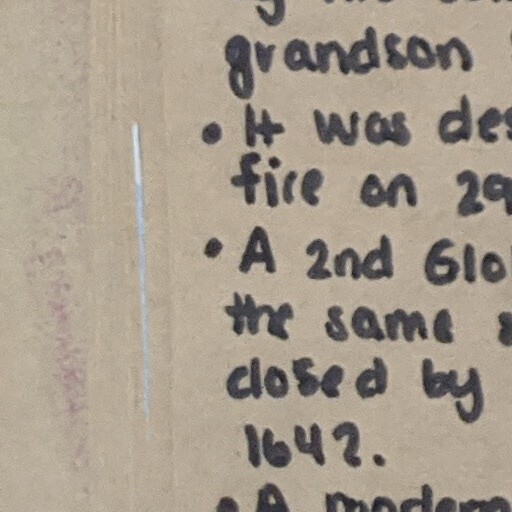 grandson
• It was des
fire on 29
• A 2nd Glo
the same
closed by
1642.
• A modern